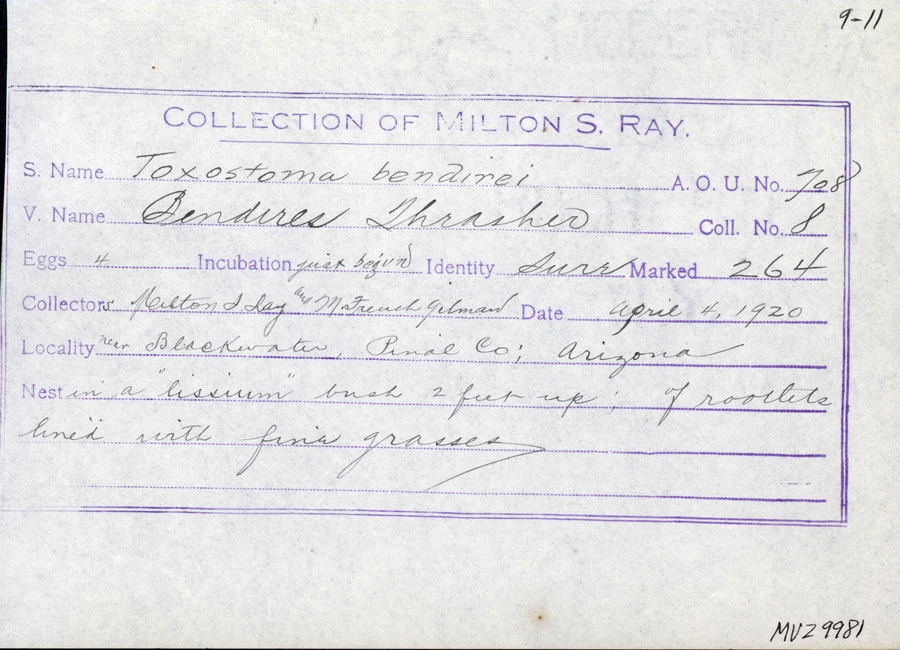 9-11
COLLECTION OF MILTON S. RAY.
S. Name Toxostoma bendirei A. O. U. No. 708
V. Name Bendires Thrasher Coll. No. 8
Eggs 4 Incubation just begun Identity Sure Marked 264
Collectors Milton S Ray and M. French Gilman Date April 4, 1920
Locality near Blackwater, Pinal Co; Arizona
Nest in a "lissium" bush 2 feet up; of rootlets
lined with fine grasses
MVZ 9981